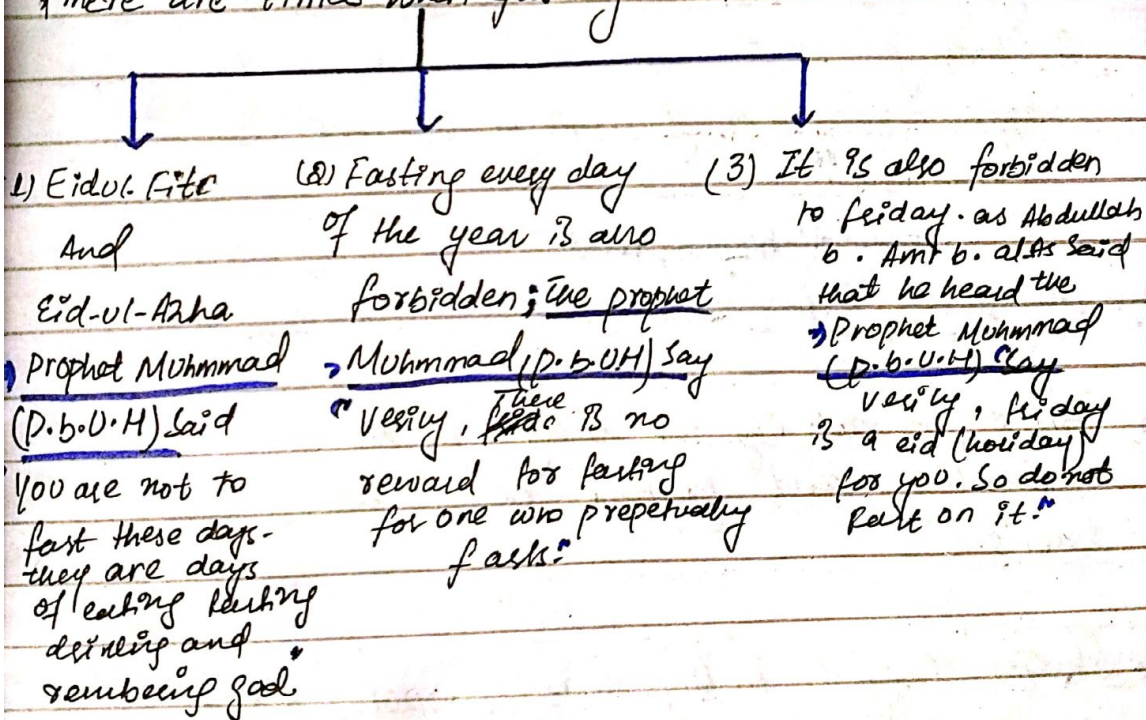 There are times when
1) Eidul-Fitr
And
Eid-ul-Azha
Prophet Muhmmad
(P.b.U.H) Said
You are not to
fast these days-
they are days
of eating
drinking and
rembeing god"
(2) Fasting every day
of the year is also
forbidden; The prophet
Muhmmad (P.b.UH) Say
"Verily, There is no
reward for fasting
for one who prepetually
fasts."
(3) It is also forbidden
to friday. as Abdullah
b. Amr b. al As Said
that he heard the
Prophet Muhmmad
(P.b.U.H) "Say
Verily, friday
is a eid (holiday)
for you. So do not
fast on it."